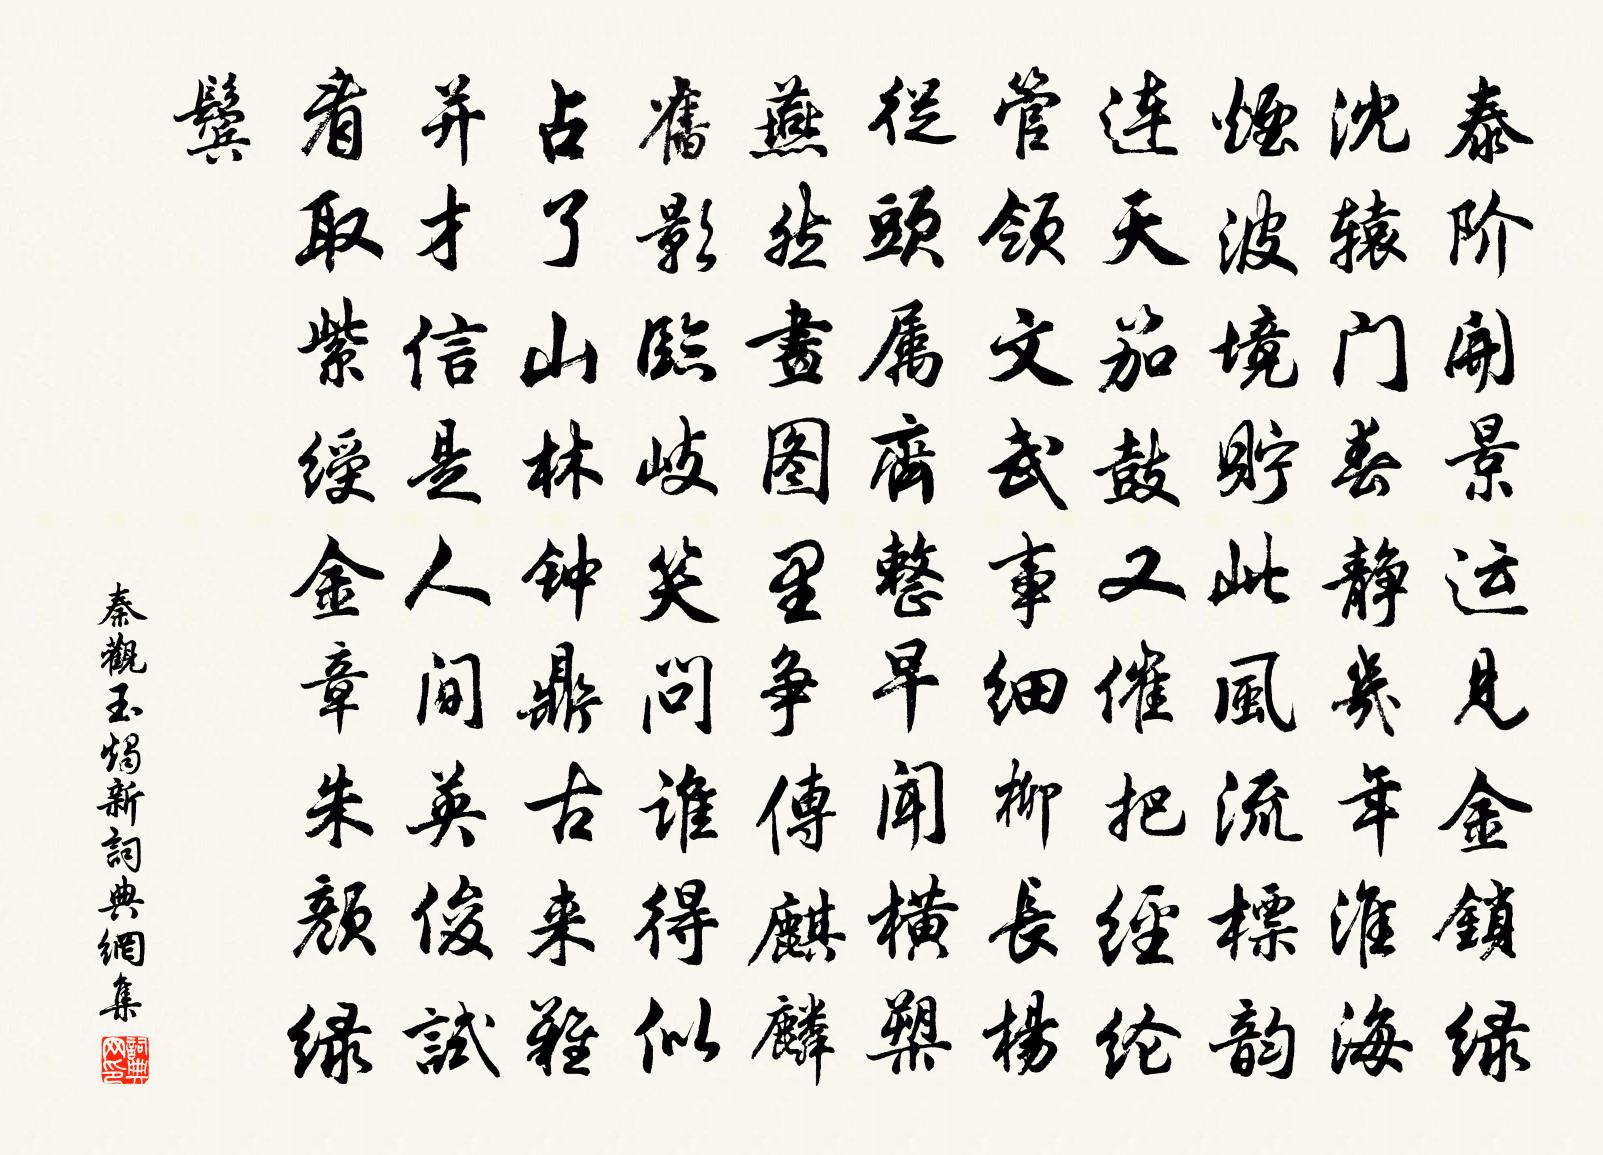 泰阶開景运見金鎖绿
沈辕门春静幾年淮海
煙波境貯此風流標韵
連天笳鼓又催把經纶
管领文武事细柳長楊
從頭属齊整早闻横槊
燕然畫图里争傳麒麟
舊影臨歧笑问谁得似
占了山林钟鼎古来難
并才信是人间英俊試
看取紫绶金章朱颜绿
鬓
秦觀玉燭新詞典網集
詞典网印